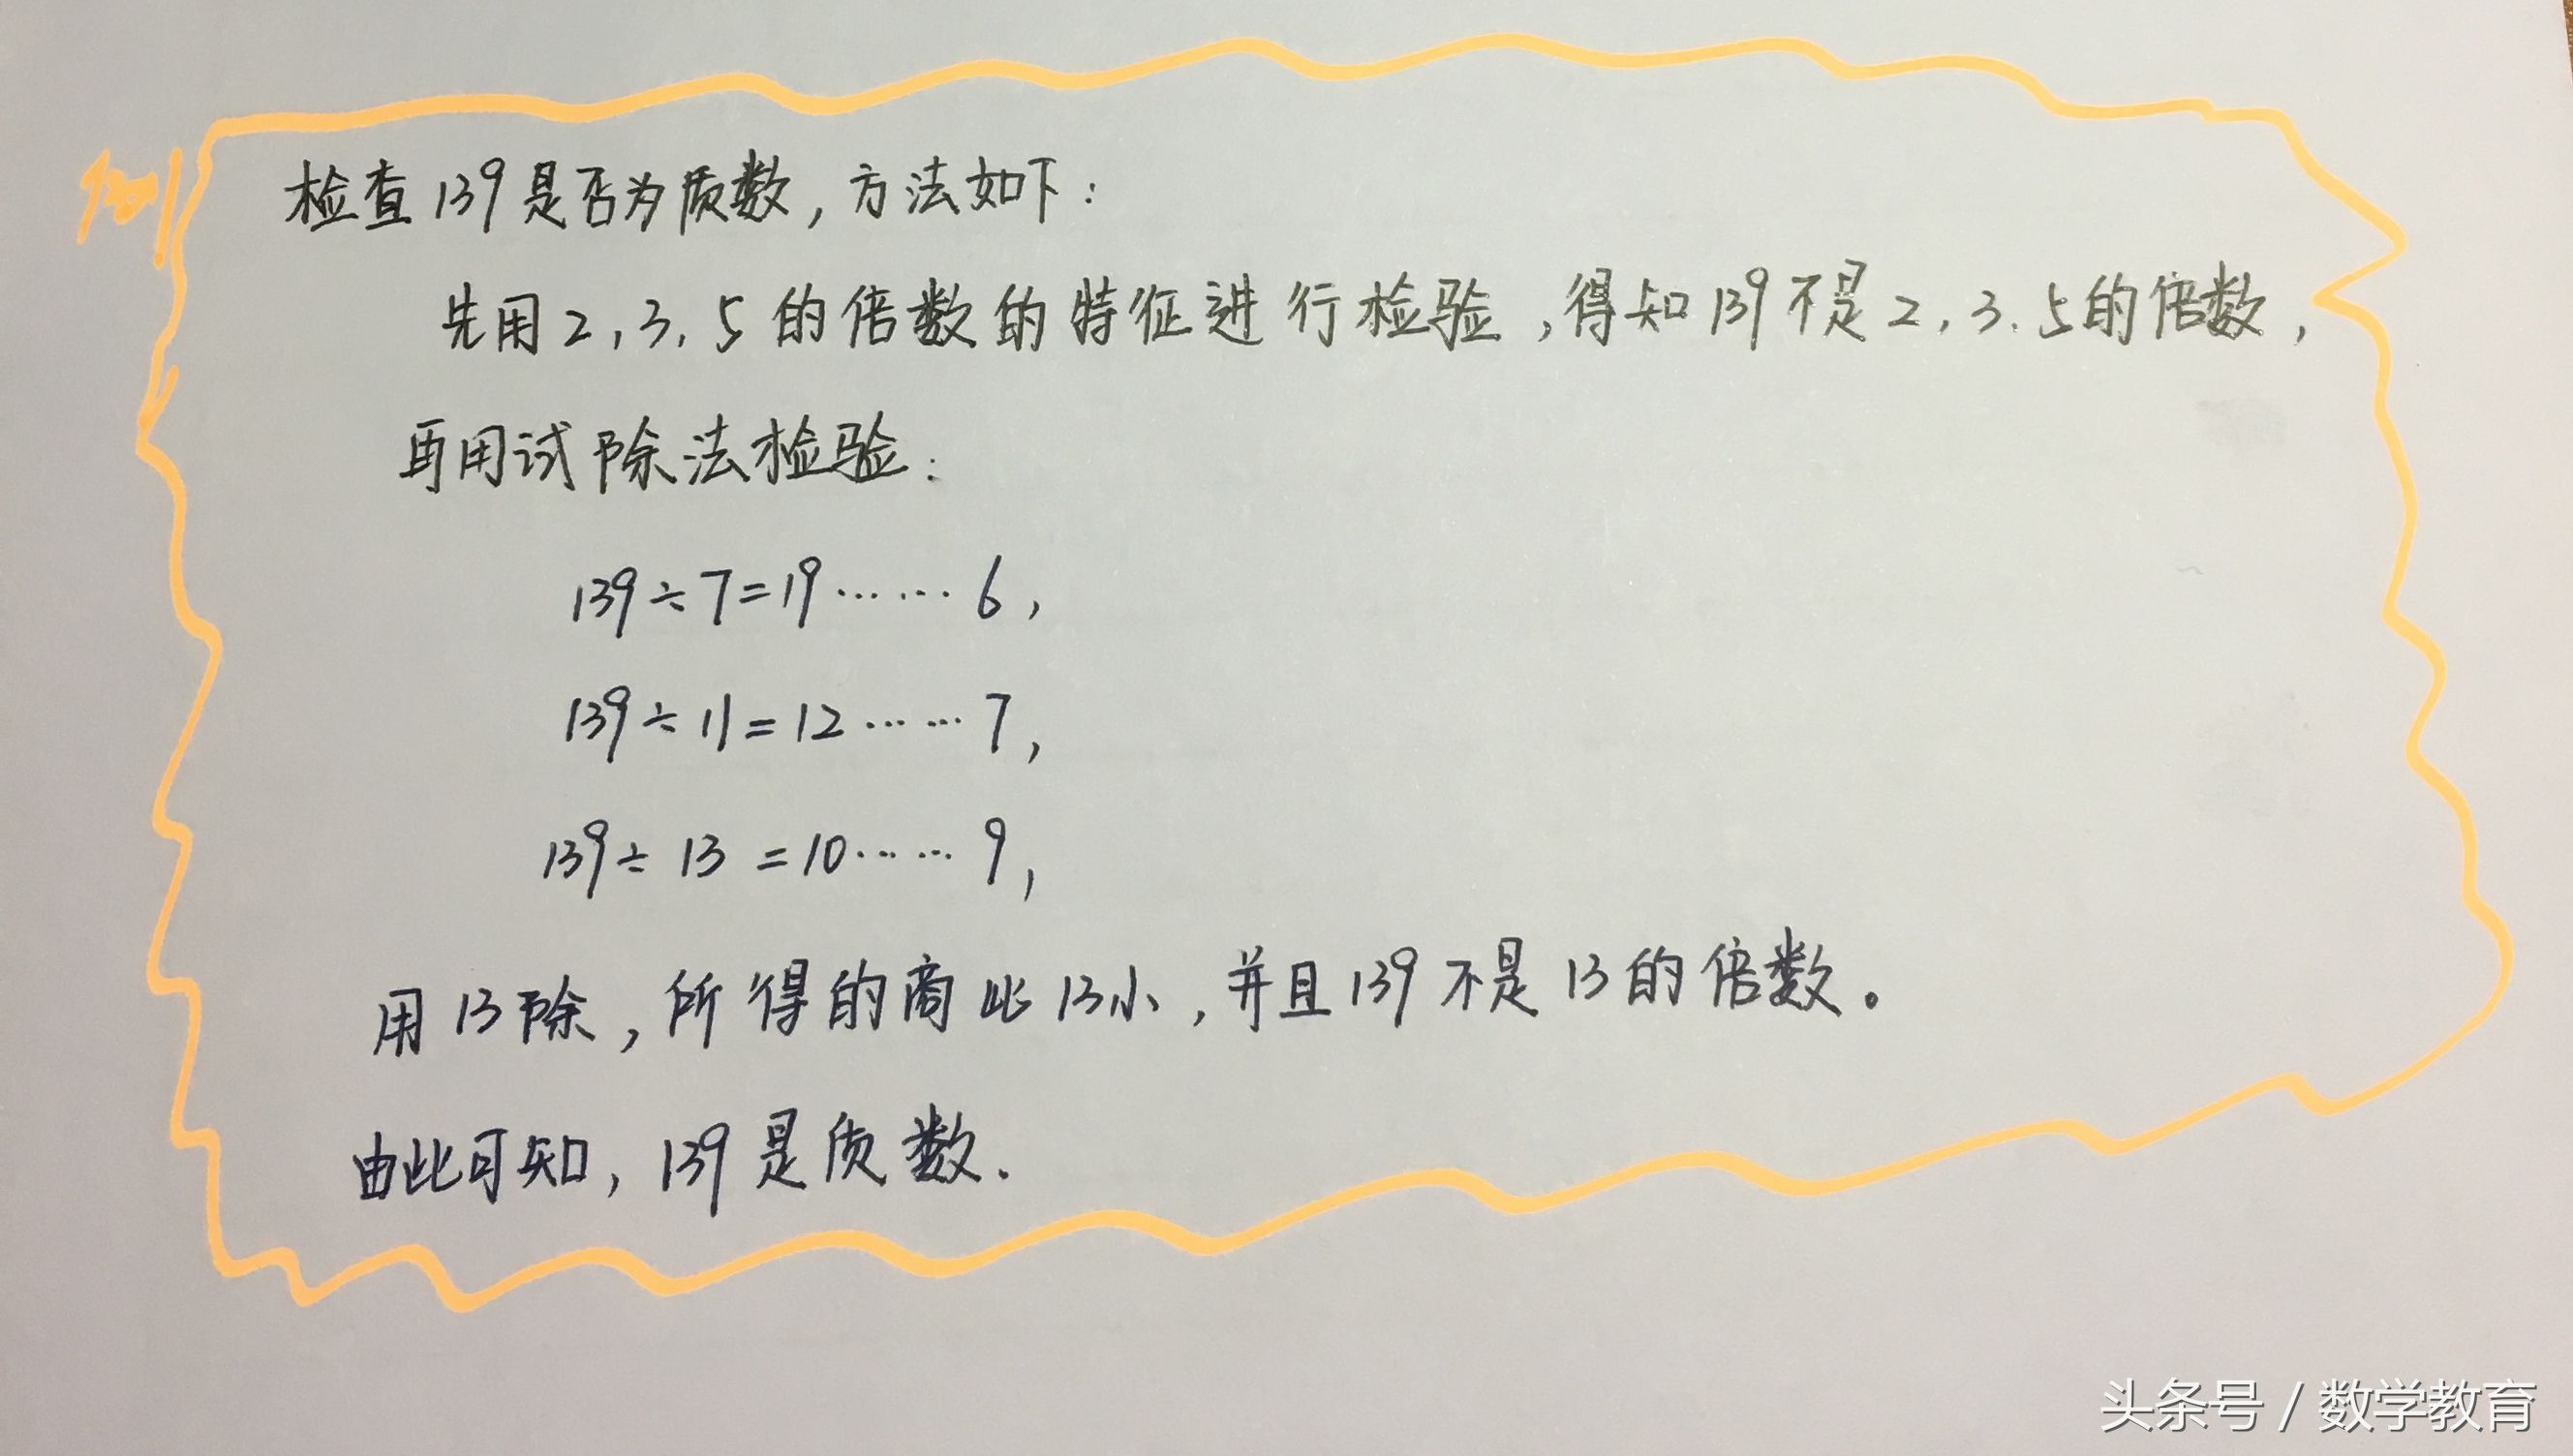 例
检查139是否为质数,方法如下:
先用2,3,5的倍数的特征进行检验,得知139不是2,3.5的倍数,
再用试除法检验:
139÷7=19……6,
139÷11=12……7,
139÷13=10……9,
用13除,所得的商比13小,并且139不是13的倍数。
由此可知,139是质数.
头条号/数学教育